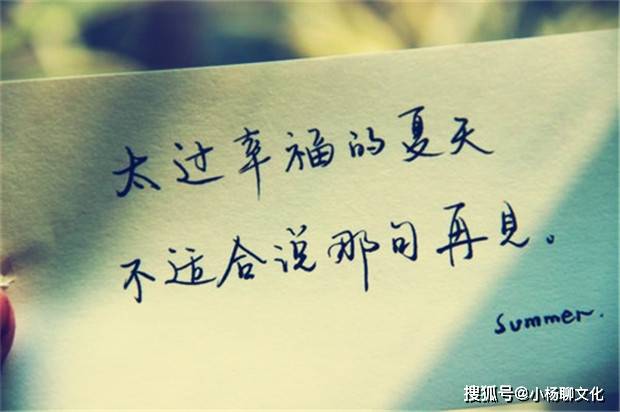 太过幸福的夏天
不适合说那句再见。
summer.
搜狐号@小杨聊文化